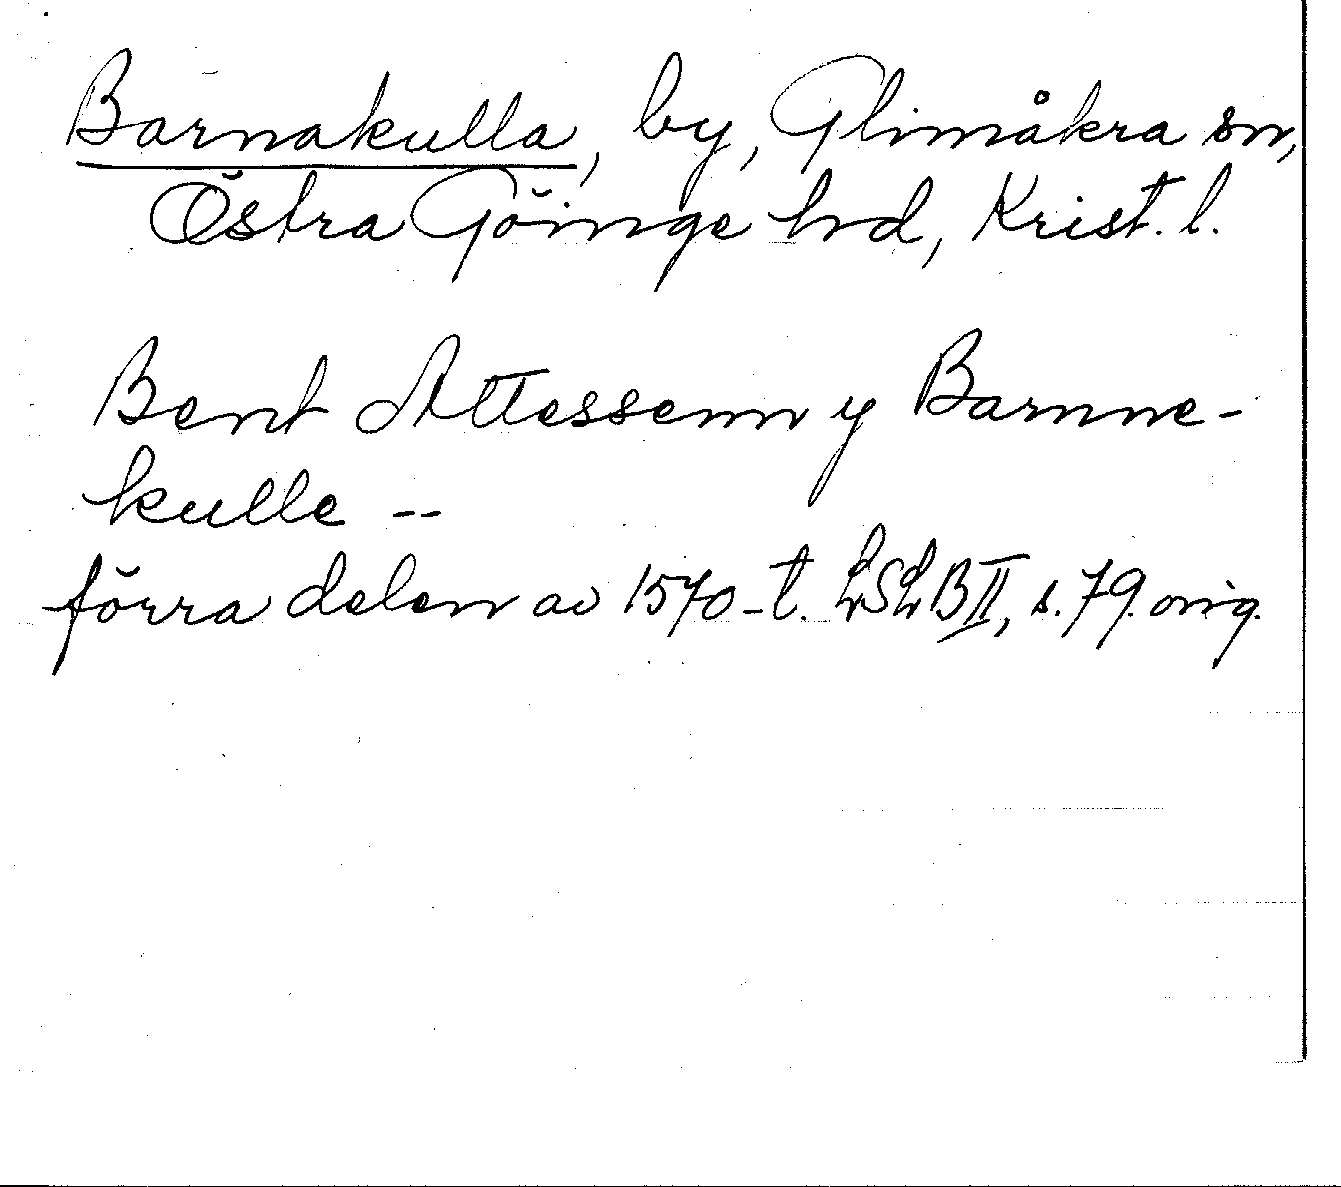 Barnakulla, by, Glimåkra sn,
Östra Göinge hd, Krist. l.
Bent Attessenn y Barnne-
kulle --
förra delen av 1570-t. LSLB II, s. 79. orig.